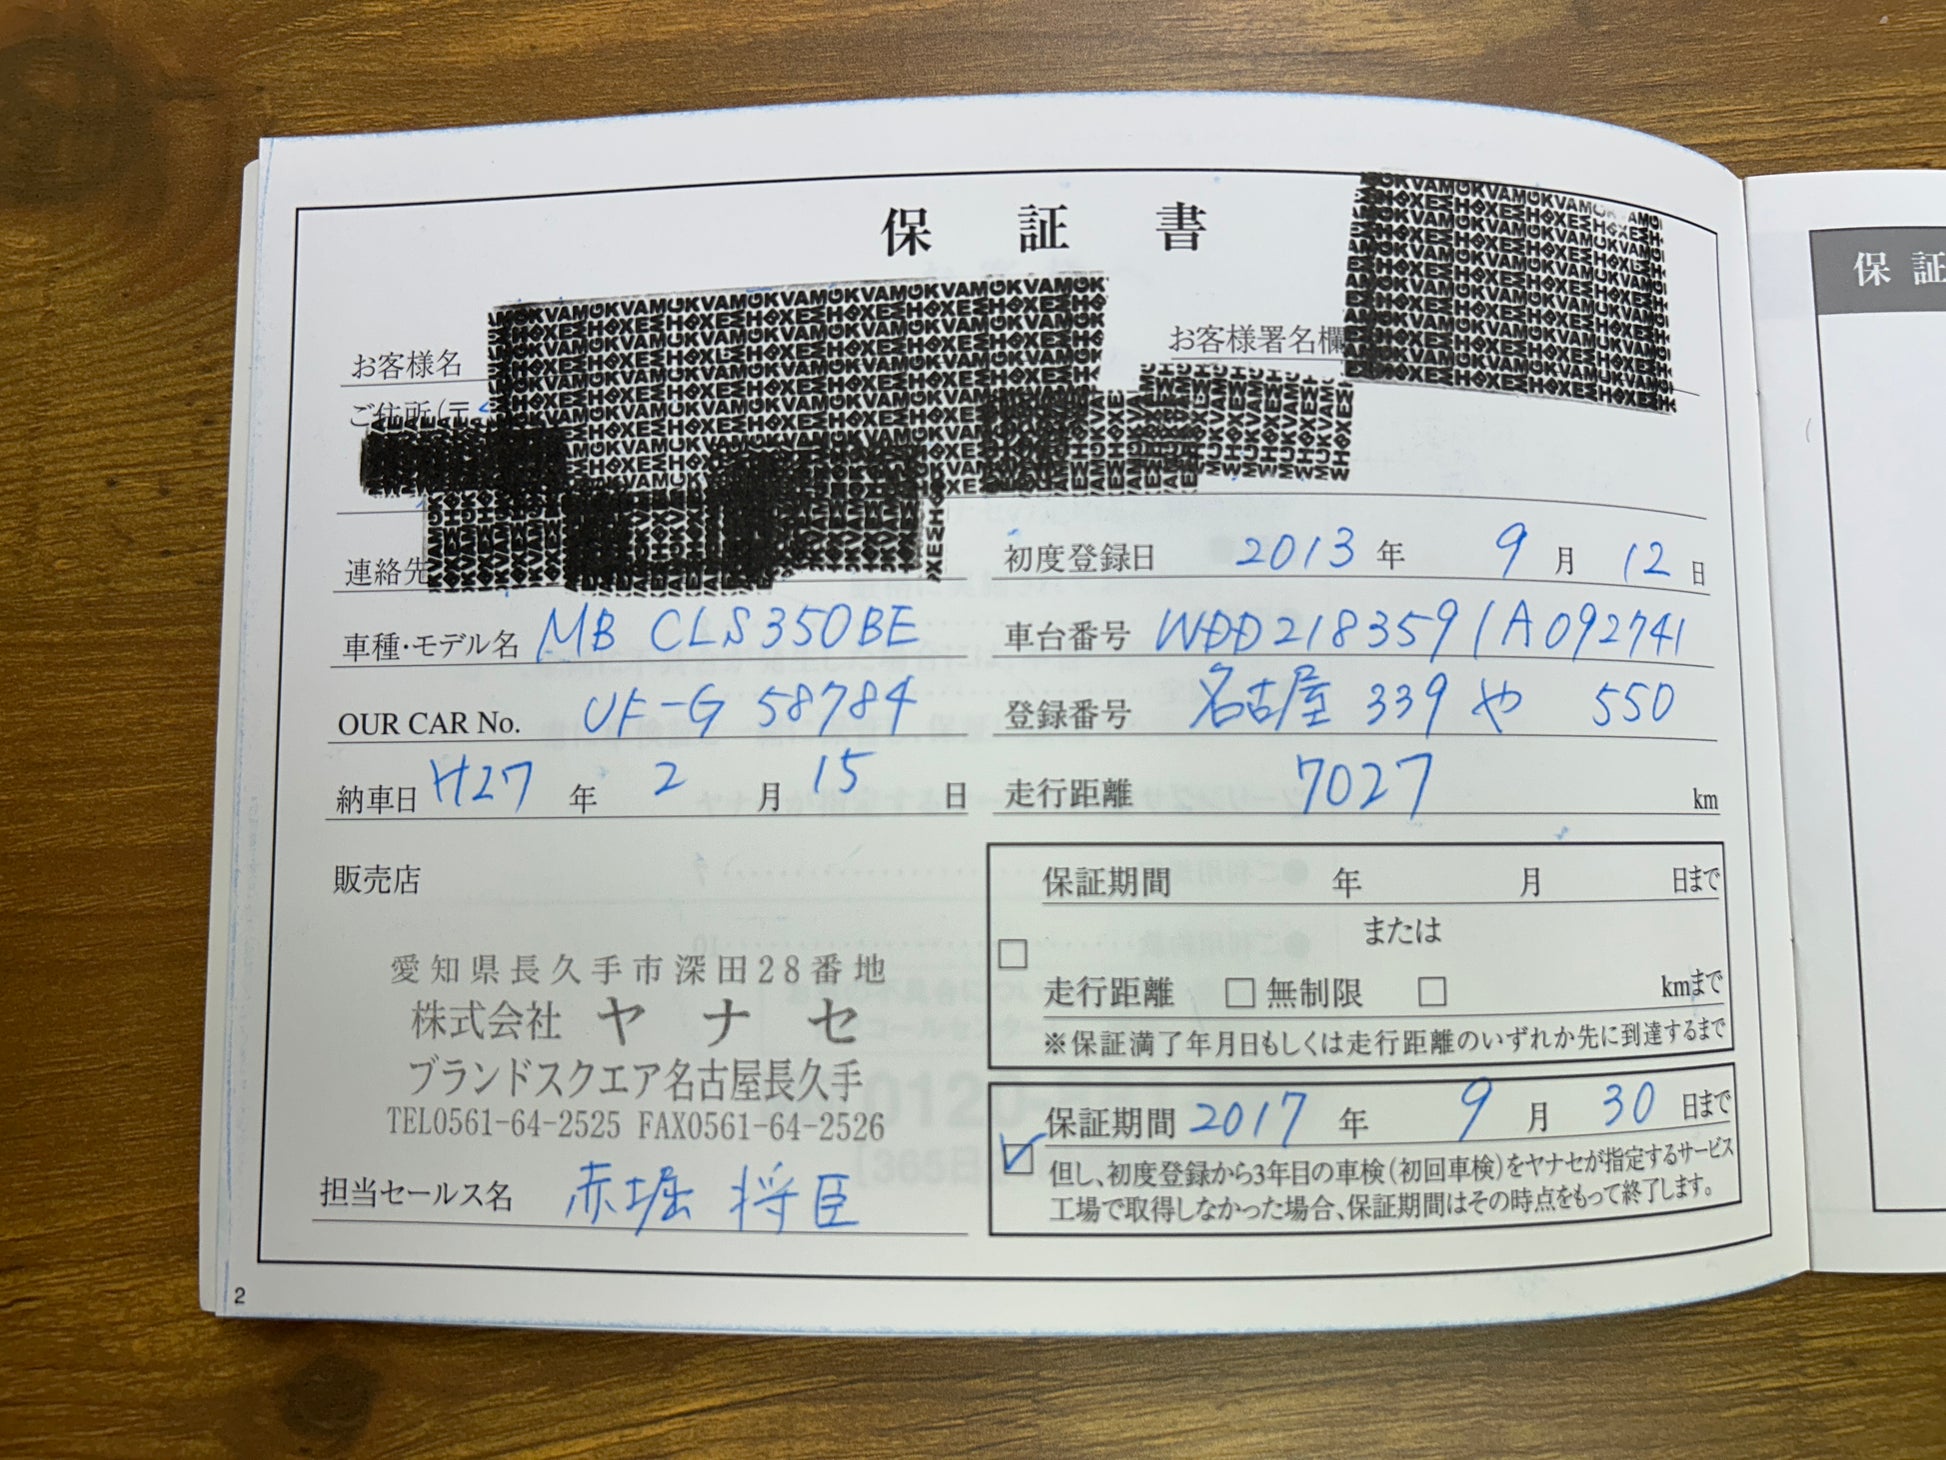 保証書
お客様名
お客様署名欄
ご住所(〒
連絡先
初度登録日 2013 年 9 月 12 日
車種・モデル名 MB CLS350BE
車台番号 WDD2183591A092741
OUR CAR No. UF-G 58784
登録番号 名古屋 339 や 550
納車日 H27 年 2 月 15 日
走行距離 7027 km
販売店
愛知県長久手市深田28番地
株式会社 ヤナセ
ブランドスクエア名古屋長久手
TEL0561-64-2525 FAX0561-64-2526
担当セールス名 赤堀 将臣
保証期間 年 月 日まで
または
走行距離 □ 無制限 □ kmまで
※保証満了年月日もしくは走行距離のいずれか先に到達するまで
保証期間 2017 年 9 月 30 日まで
但し、初度登録から3年目の車検(初回車検)をヤナセが指定するサービス
工場で取得しなかった場合、保証期間はその時点をもって終了します。
2
保証